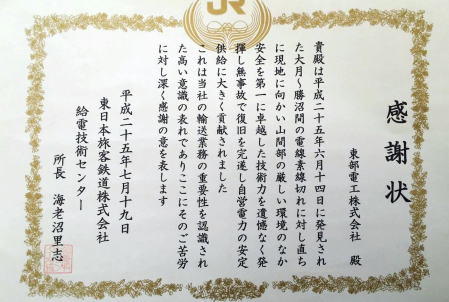 JR
感謝状
東部電工株式会社 殿
貴殿は平成二十五年六月十四日に発見され
た大月～勝沼間の電線素線切れに対し直ち
に現地に向かい山間部の厳しい環境のなか
安全を第一に卓越した技術力を遺憾なく発
揮し無事故で復旧を完遂し自営電力の安定
供給に大きく貢献されました
これは当社の輸送業務の重要性を認識され
た高い意識の表れでありここにそのご苦労
に対し深く感謝の意を表します
平成二十五年七月十九日
東日本旅客鉄道株式会社
給電技術センター
所長 海老沼里志